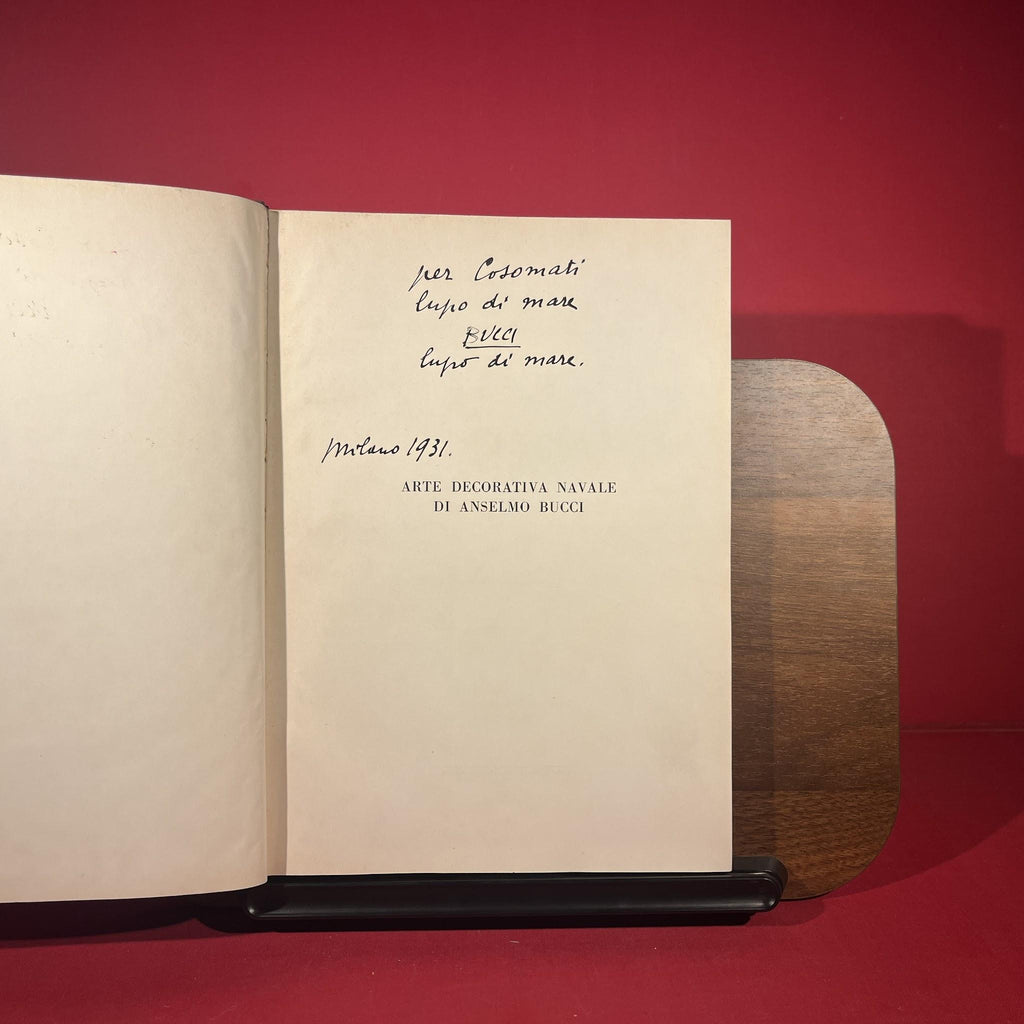 per Cosomati
lupo di mare
BUCCI
lupo di mare.
Milano 1931.
ARTE DECORATIVA NAVALE
DI ANSELMO BUCCI